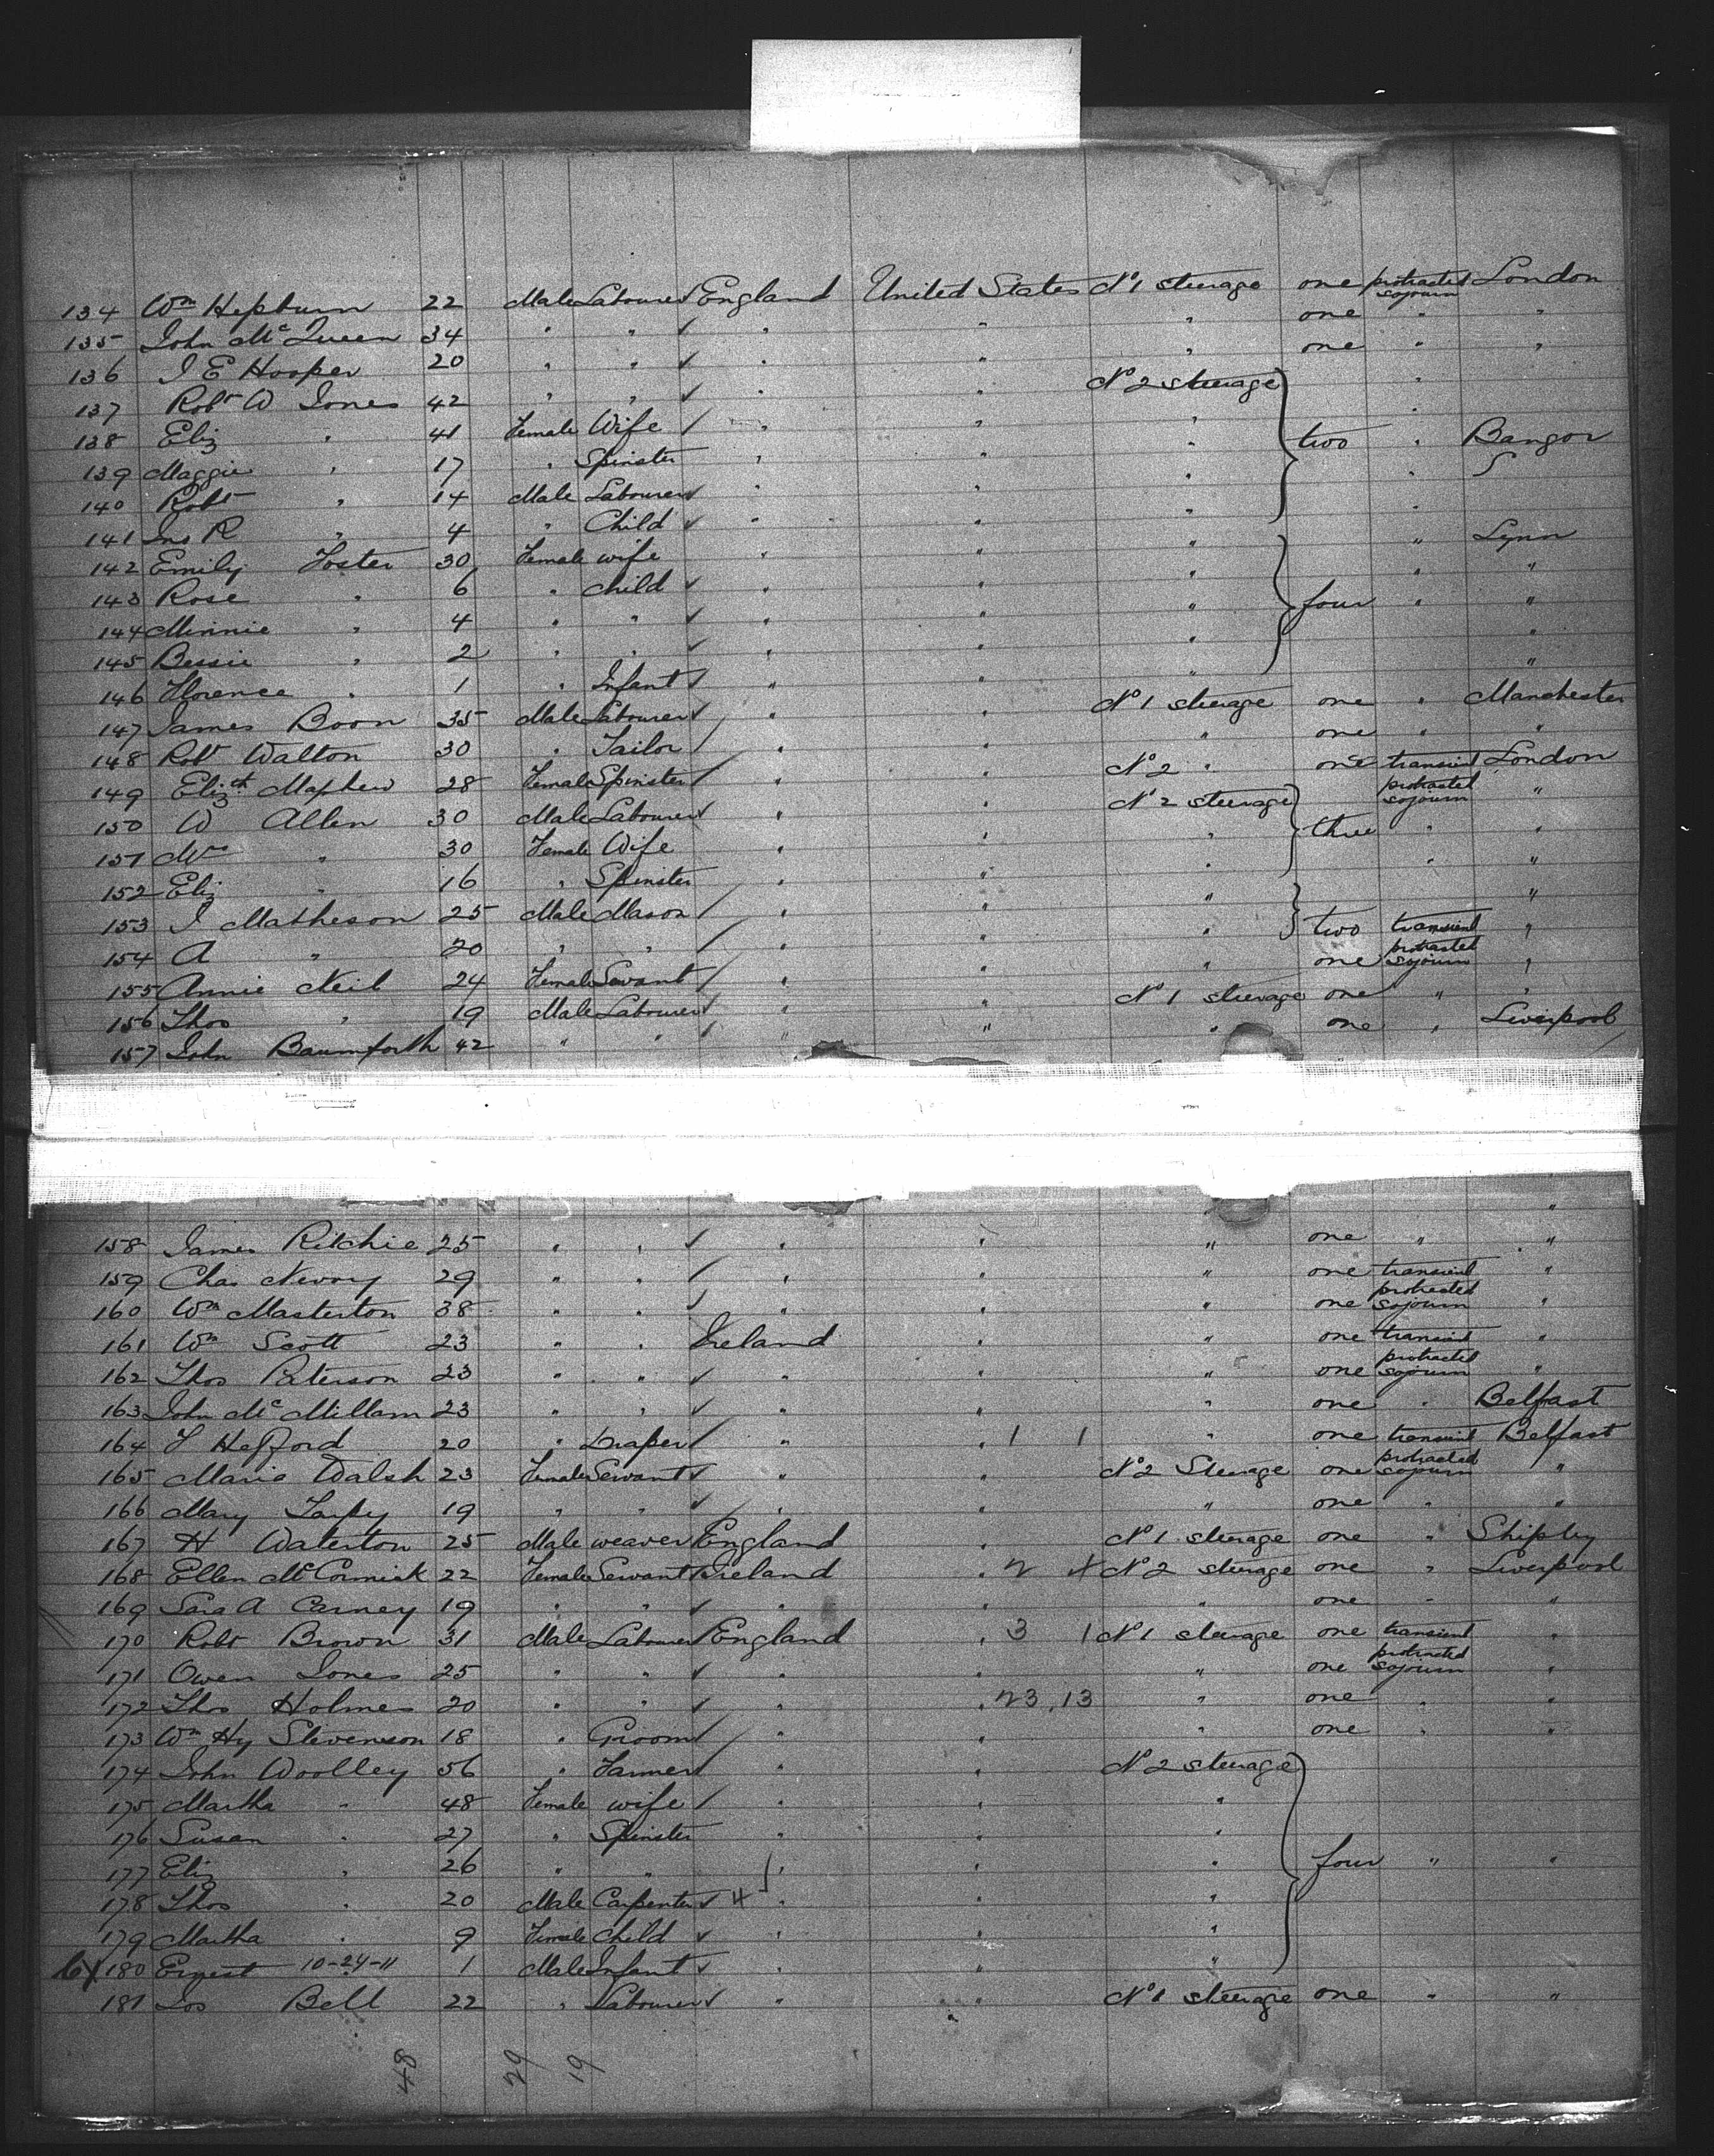 134 Wm Hepburn 22 Male Labourer England United States No 1 steerage one protracted sojourn London
135 John McQueen 34 " " " " " one " "
136 J E Hooper 20 " " " " " one " "
137 Robt W Jones 42 " " " " No 2 steerage "
138 Eliz " 41 Female Wife " " " two " Bangor
139 Maggie " 17 " Spinster " " " "
140 Robt " 14 Male Labourer " " " "
141 Jno R " 4 " Child " " " " Lynn
142 Emily Foster 30 Female wife " " " " "
143 Rose " 6 " Child " " " four " "
144 Minnie " 4 " " " " " "
145 Bessie " 2 " " " " " "
146 Florence " 1 " Infant " "
147 James Boon 35 Male Labourer " " No 1 steerage one " Manchester
148 Robt Walton 30 " Tailor " " " one " "
149 Elizth Maphew 28 Female Spinster " " No 2 " one transient London
150 W Allen 30 Male Labourer " " No 2 steerage protracted sojourn "
151 Mrs " 30 Female Wife " " " three " "
152 Eliz " 16 " Spinster " " " " "
153 J Matheson 25 Male Mason " " " "
154 A " 20 " " " " " two transient "
155 Annie Neil 24 Female Servant " " " one protracted sojourn "
156 Thos " 19 Male Labourer " " No 1 steerage one " "
157 John Baumforth 42 " " " " " one " Liverpool
158 James Ritchie 25 " " " " " one " "
159 Chas Nevory 29 " " " " " one transient "
160 Wm Masterton 38 " " " " " one protracted sojourn "
161 Wm Scott 23 " " Ireland " " one transient "
162 Thos Paterson 23 " " " " " one protracted sojourn "
163 John McMillam 23 " " " " " one " Belfast
164 J Hefford 20 " Draper " " 1 1 " one transient Belfast
165 Maria Walsh 23 Female Servant " " No 2 Steerage one protracted sojourn "
166 Mary 19 " " " " " one " "
167 H Waterton 25 Male weaver England " No 1 steerage one " Shipley
168 Ellen McCormick 22 Female Servant Ireland " 2 4 No 2 steerage one " Liverpool
169 Sara A Carney 19 " " " " " one " "
170 Robt Brown 31 Male Labourer England " 3 1 No 1 steerage one transient "
171 Owen Jones 25 " " " " " one protracted sojourn "
172 Thos Holmes 20 " " " " 23.13 " one " "
173 Wm Hy Stevenson 18 " Groom " " " one " "
174 John Woolley 56 " Farmer " " No 2 steerage
175 Martha " 48 Female wife " " "
176 Susan " 27 " Spinster " " "
177 Eliz " 26 " " " " " four " "
178 Thos " 20 Male Carpenter 4 " " "
179 Martha " 9 Female Child " " "
180 Ernest 10-24-11 1 Male Infant " " "
181 Jos Bell 22 " Labourer " " No 1 steerage one " "
48 29 19